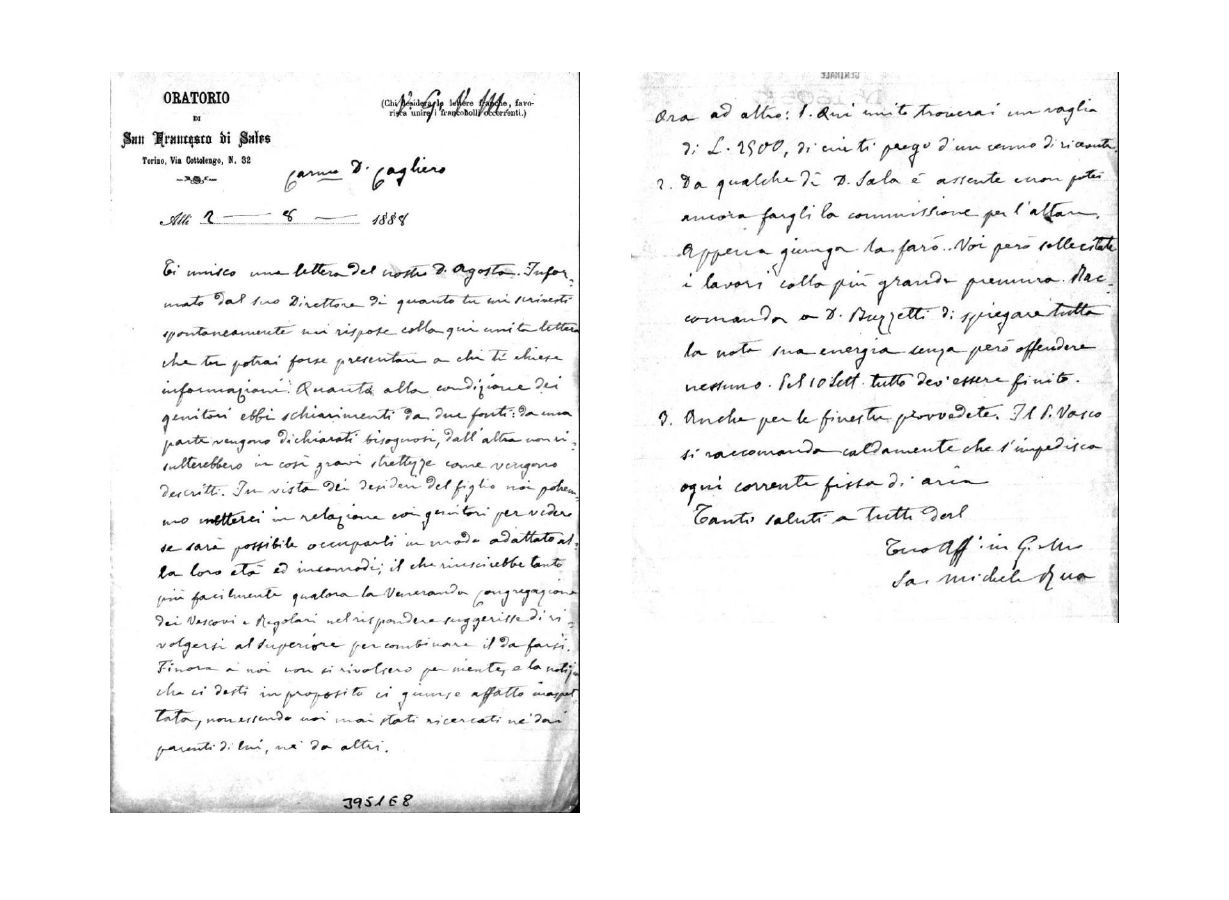 ORATORIO
DI
San Francesco di Sales
Torino, Via Cottolengo, N. 32
(Chi desidera le lettere franche, favo-
risca unire i francobolli occorrenti.)
Carmo D. Cagliero
Alli 2 — 8 — 1888
Ti unisco una lettera del nostro D. Agosta. Infor-
mato dal suo Direttore di quanto tu mi scrivesti
spontaneamente mi rispose colla qui unita lettera
che tu potrai forse presentare a chi ti chiese
informazioni. Quanto alla condizione dei
genitori ebbi schiarimenti da due fonti: da una
parte vengono dichiarati bisognosi, dall'altra non ri-
sulterebbero in così gravi strettezze come vengono
descritti. In vista dei desideri del figlio noi potrem-
mo metterci in relazione coi genitori per vedere
se sarà possibile occuparli in modo adattato al-
la loro età ed incomodi; il che riuscirebbe tanto
più facilmente qualora la Veneranda Congregazione
dei Vescovi e Regolari nel rispondere suggerisse di ri-
volgersi al Superiore per combinare il da farsi.
Finora a noi non si rivolsero per niente, e la notizia
che ci desti in proposito ci giunse affatto inaspet
tata, non essendo noi mai stati ricercati nè dai
parenti di lui, nè da altri.
395168
Ora ad altro: 1. Qui unito troverai un vaglia
di L. 2500, di cui ti prego d'un cenno di ricevuta.
2. Da qualche dì D. Sala è assente e non potei
ancora fargli la commissione per l'altare.
Appena giunga la farò. Voi però sollecitate
i lavori colla più grande premura. Rac-
comanda a D. Buzzetti di spiegare tutta
la nota sua energia senza però offendere
nessuno. Pel 10 Sett. tutto dev'essere finito.
3. Anche per le finestre provvedete. Il P. Vasco
si raccomanda caldamente che s'impedisca
ogni corrente fissa di aria
Tanti saluti a tutti dal
Tuo Aff. in G. e M.
Sac. Michele Rua